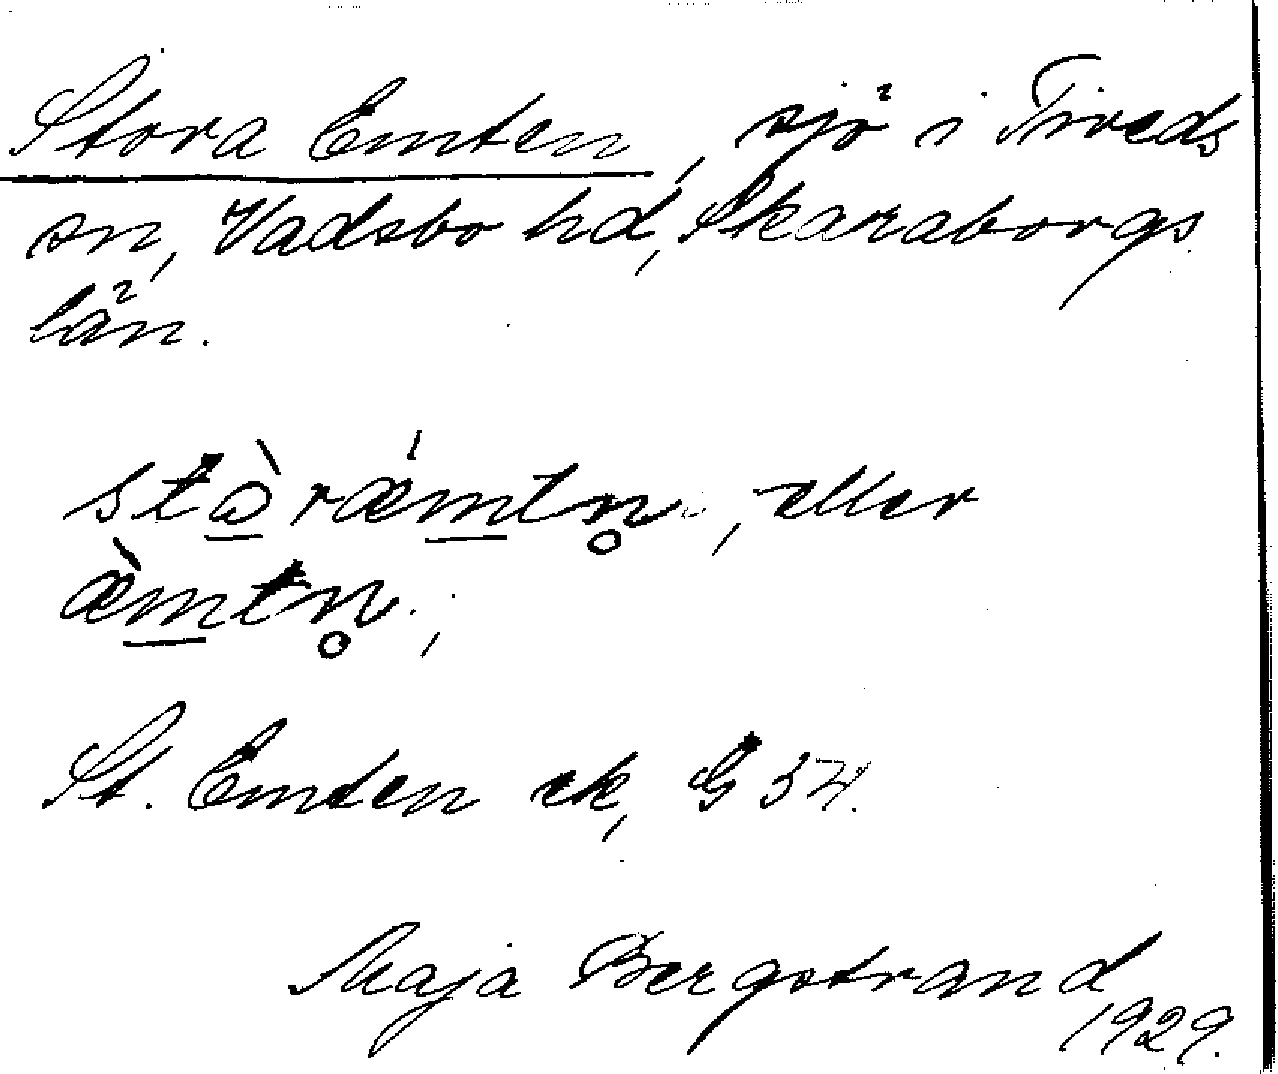 Stora Emten, sjö i Tiveds
sn, Vadsbo hd, Skaraborgs
län.
stɷ̠̀rǽm̠tn̥, eller
æ̀m̠tn̥,
St. Emten ek, G 34.
Maja Bergstrand
1929.